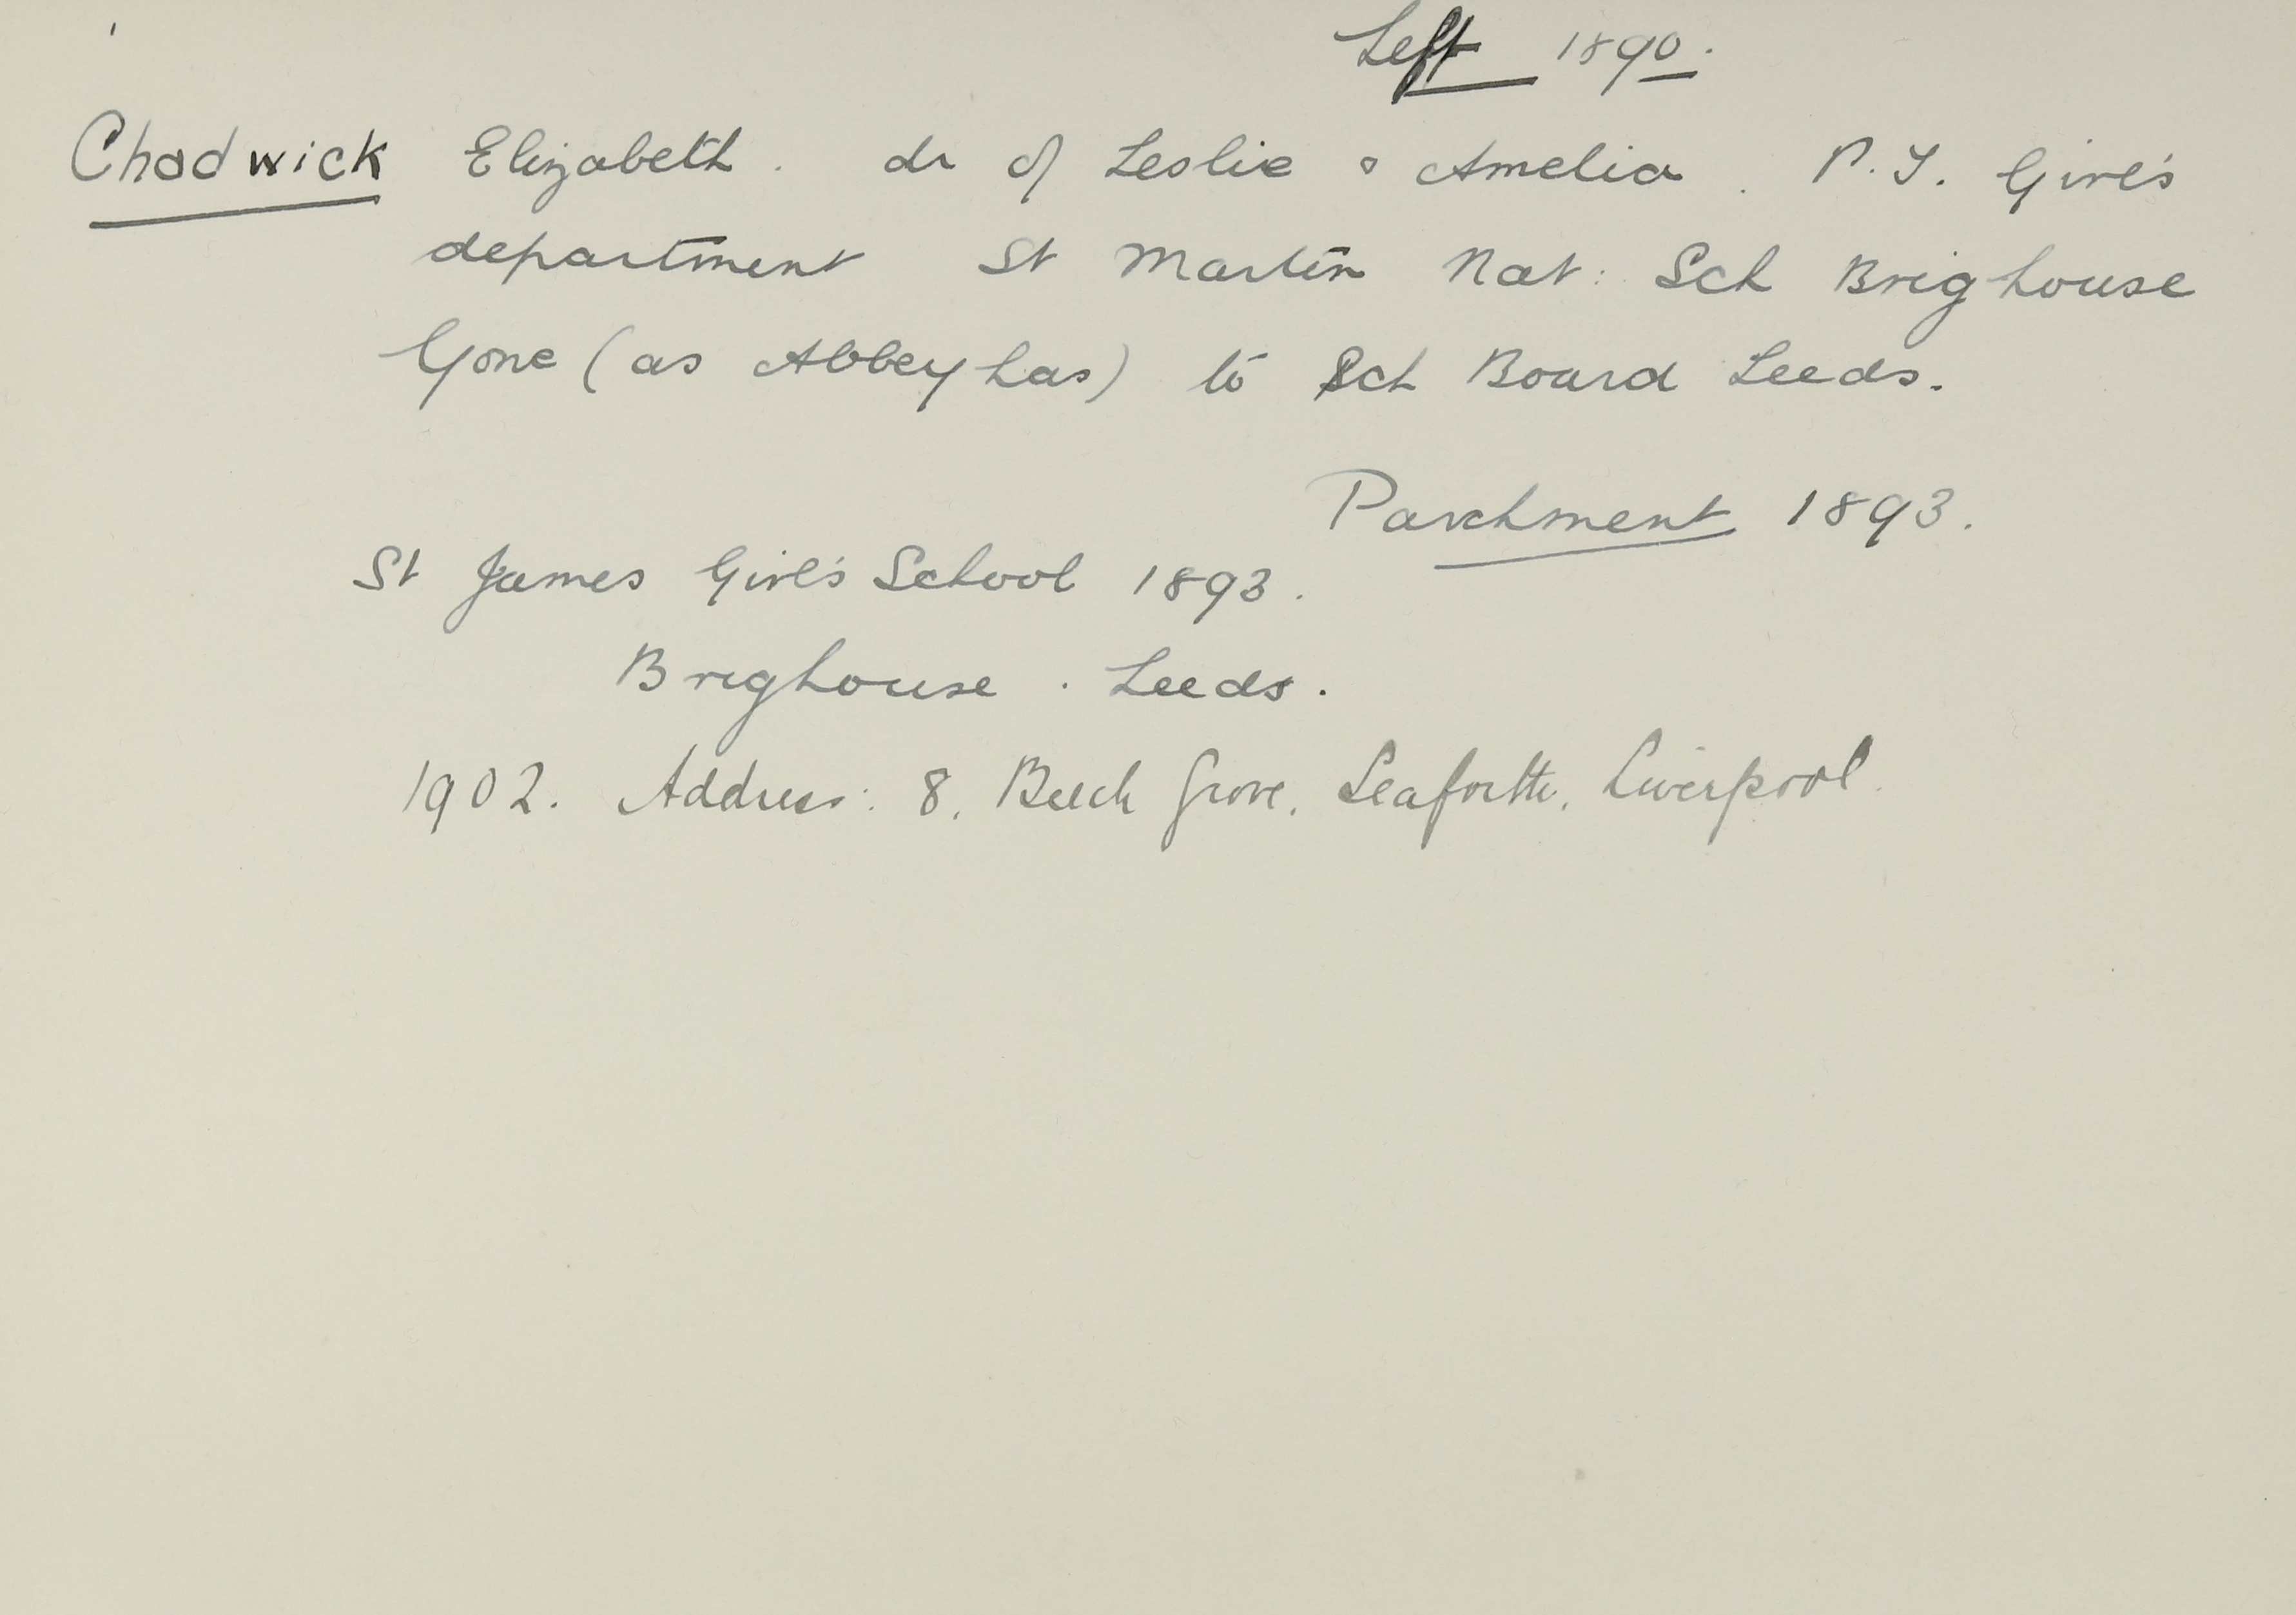 Left 1890.
Chadwick Elizabeth. dr of Leslie & Amelia. P.T. Girl's
department St Martin Nat: Sch Brighouse
Gone (as Abbey has) to Sch Board Leeds.
Parchment 1893.
St James Girl's School 1893.
Brighouse. Leeds.
1902. Address: 8, Beech Grove, Seaforth, Liverpool.